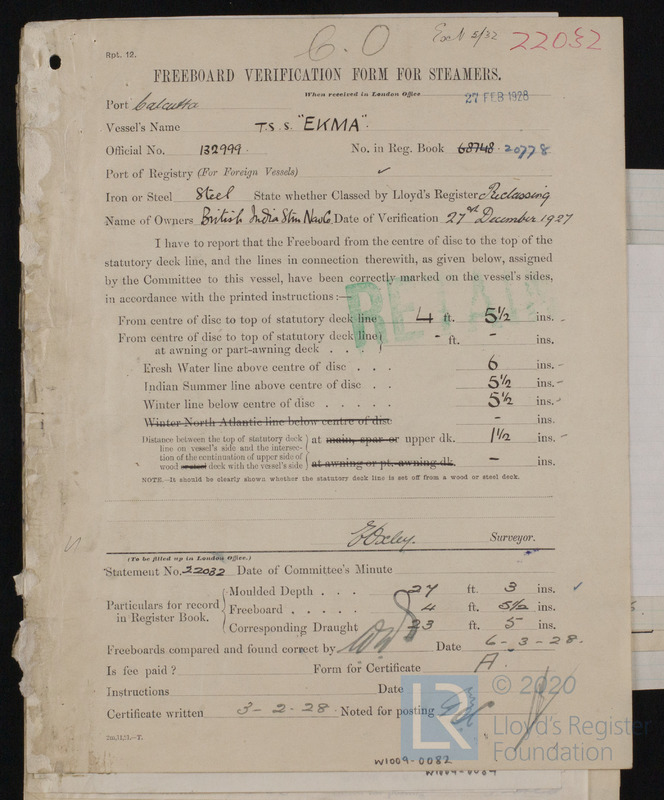 Rpt. 12.
C.O
22032
FREEBOARD VERIFICATION FORM FOR STEAMERS.
When received in London Office
27 FEB 1928
Port Calcutta
Vessel's Name T.S.S. "EKMA".
Official No. 132999. No. in Reg. Book 68748. 20778
Port of Registry (For Foreign Vessels)
Iron or Steel Steel State whether Classed by Lloyd's Register Reclassing
Name of Owners British India Stm Nav Co. Date of Verification 27th December 1927
I have to report that the Freeboard from the centre of disc to the top of the
statutory deck line, and the lines in connection therewith, as given below, assigned
by the Committee to this vessel, have been correctly marked on the vessel's sides,
in accordance with the printed instructions:—
From centre of disc to top of statutory deck line 4 ft. 5½ ins.
From centre of disc to top of statutory deck line
at awning or part-awning deck . . . - ft. - ins.
Fresh Water line above centre of disc . . . 6 ins.
Indian Summer line above centre of disc . . 5½ ins.
Winter line below centre of disc . . . . . 5½ ins.
Winter North Atlantic line below centre of disc - ins.
Distance between the top of statutory deck
line on vessel's side and the intersec-
tion of the continuation of upper side of
wood or steel deck with the vessel's side
at main, spar or upper dk. 1½ ins.
at awning or pt. awning dk. - ins.
NOTE.—It should be clearly shown whether the statutory deck line is set off from a wood or steel deck.
Surveyor.
(To be filled up in London Office.)
Statement No. 22032 Date of Committee's Minute
Particulars for record
in Register Book.
Moulded Depth . . . 27 ft. 3 ins.
Freeboard . . . . . 4 ft. 5½ ins.
Corresponding Draught 23 ft. 5 ins.
Freeboards compared and found correct by Date 6-3-28.
Is fee paid? Form for Certificate A.
Instructions Date
Certificate written 3-2-28. Noted for posting
W1009-0082
W1009-0084
RETAIN
LR
© 2020
Lloyd's Register
Foundation